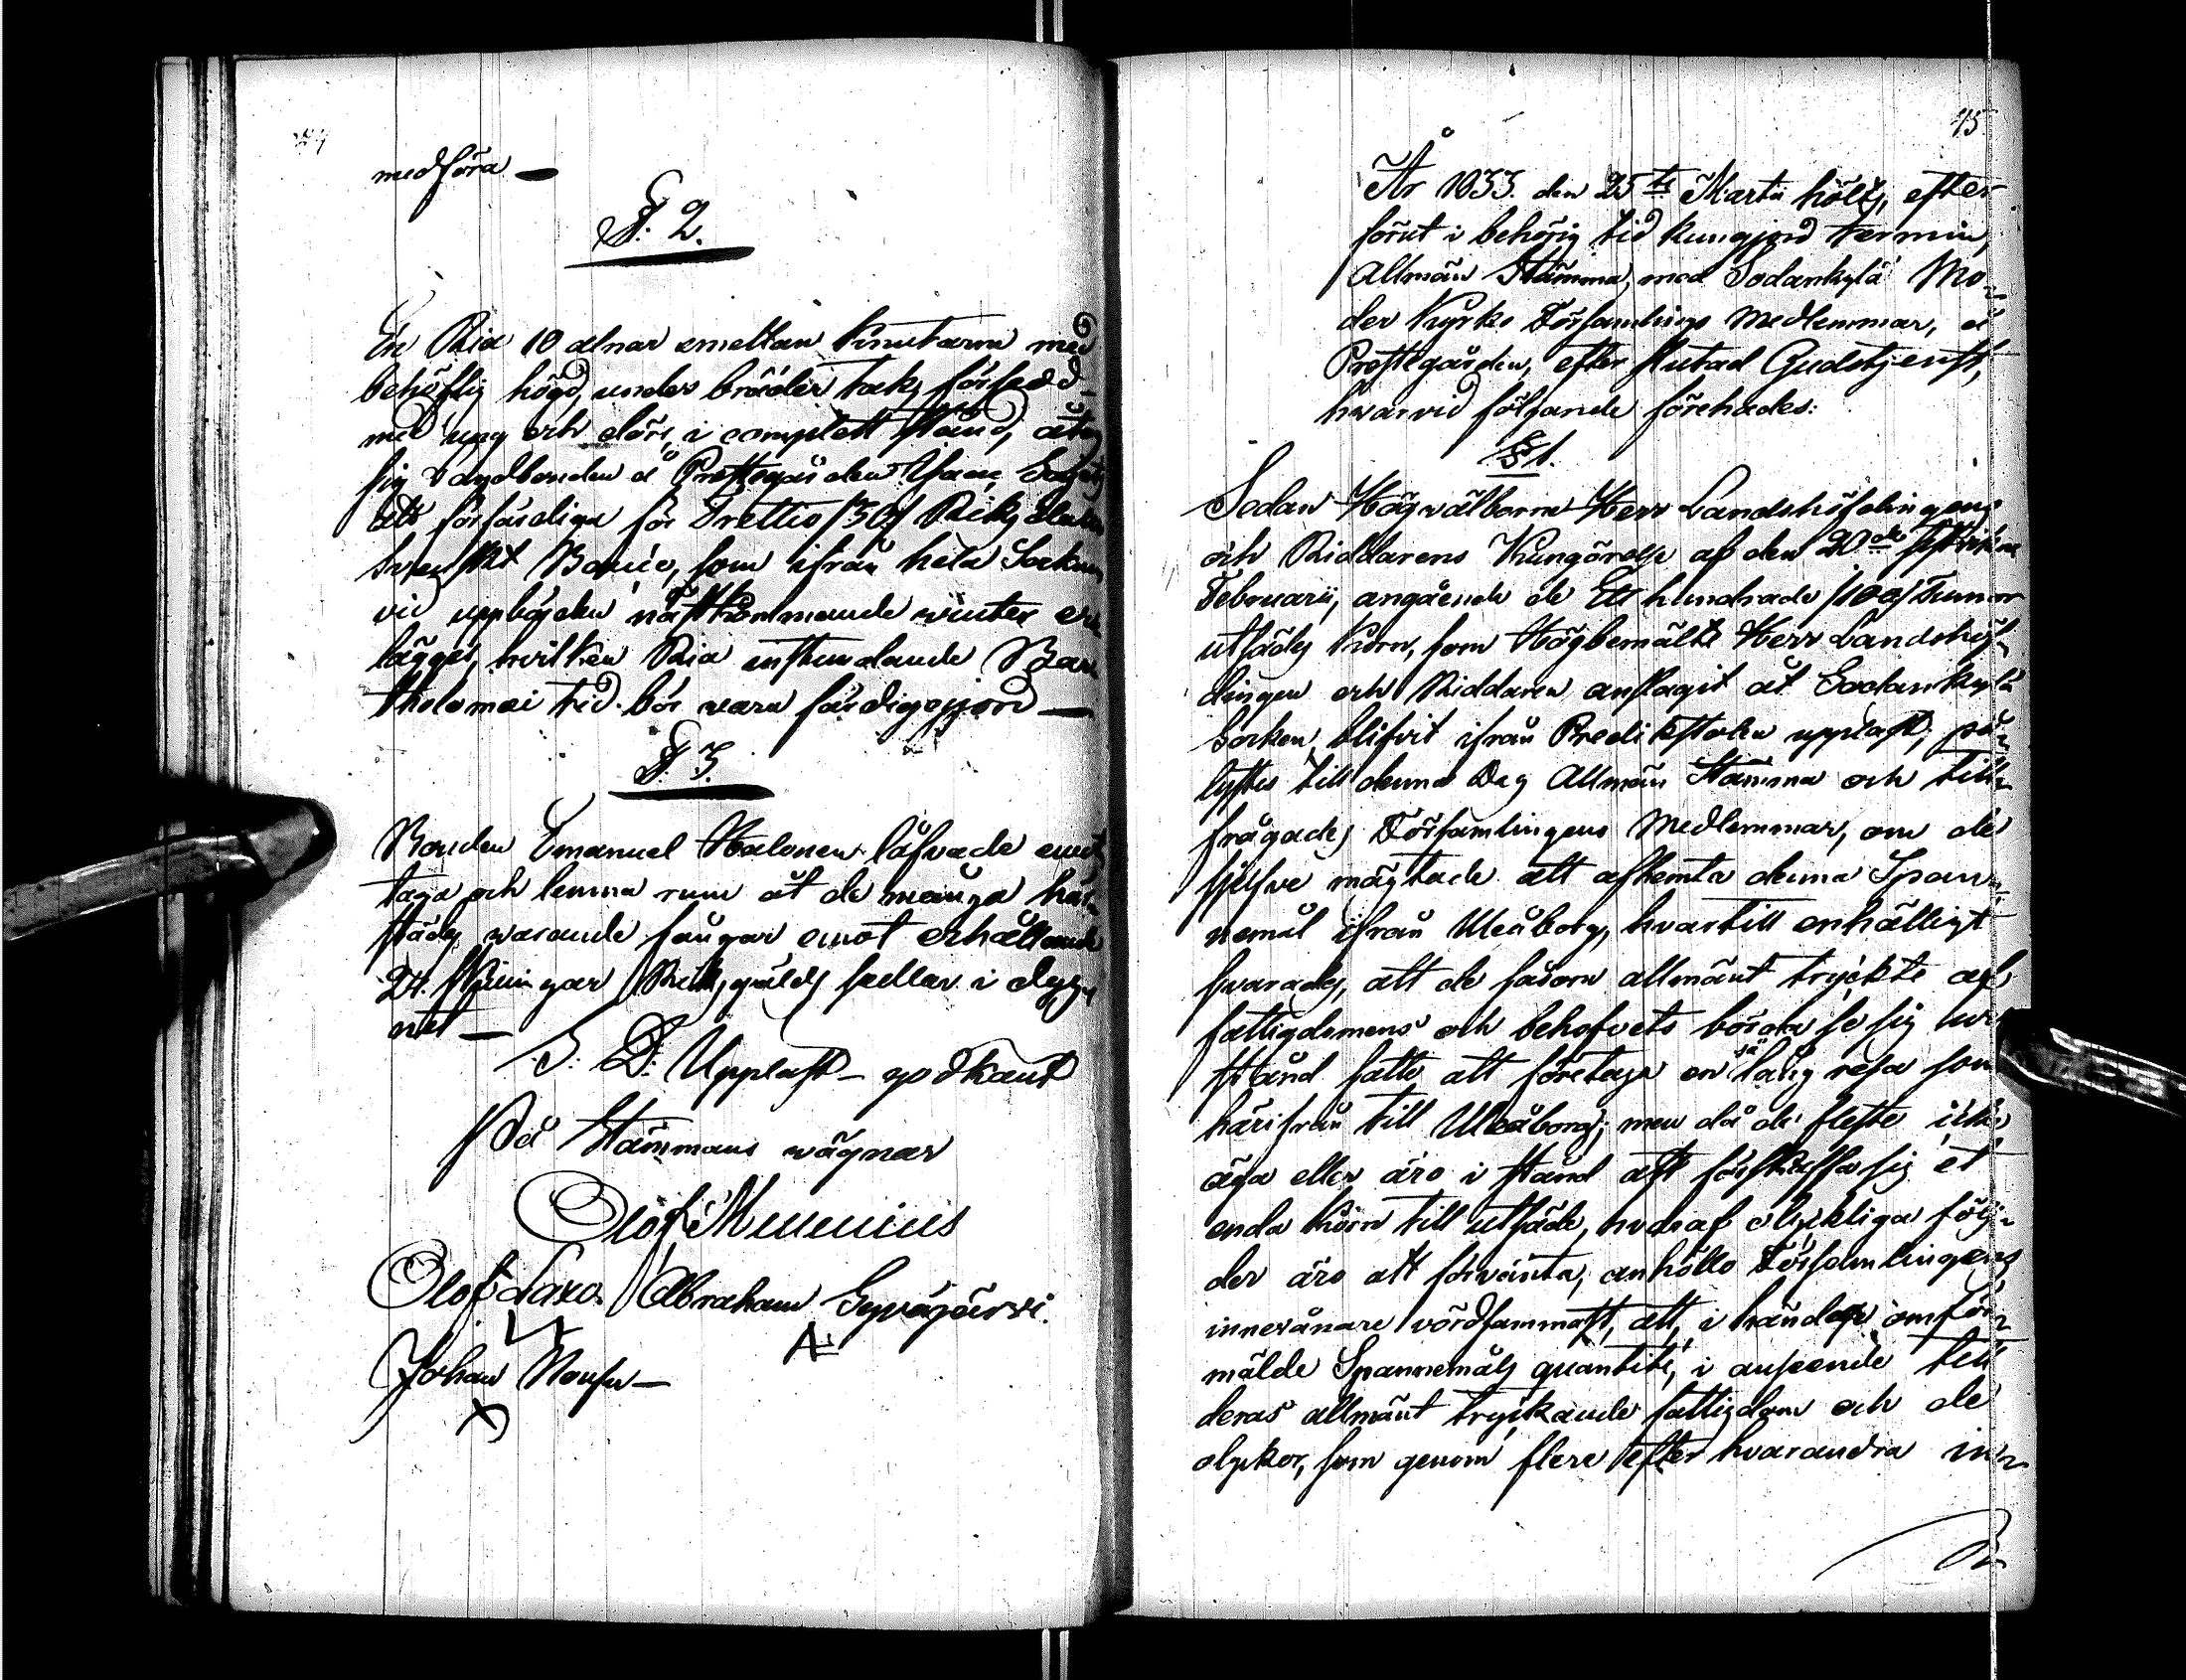 medföra —
§. 2.
En Ria 10 alnar emellan knutarne med
behöflig högd, under bräder tak, försedd
med ugn och dörr, i complett stånd, åtog
sig Landbonden å Prestegården Isaac
att förfärdiga för Trettio /30/ Riksdaler
svenskt Banco, som ifrån hela Socknen
vid uppbörden nästkommande winter er-
lägges, hvilken Ria instundande Bar-
tholomæi tid bör vara färdiggjord —
§. 3.
Bonden Emanuel Halonen låfvade emot
taga och lemna rum åt de många här-
städes warande fångar emot erhållande
24. skillingar Riksgälds sedlar i dyg-
net —
S. D. Uppläst – godkänt
På Stämmans wägnar
Olof Mesenius
Olof Laxo. Abraham Syväjärvi.
Johan
45
År 1833. den 25te Martii hölts, efter
förut i behörig tid kungjord termin,
Allmän Stämma, med Sodankylä Mo-
der Kyrko Församlings Medlemmar, å
Prestegården, efter slutad Gudstjenst,
hvarvid följande förehades:
§ 1.
Sedan Högvälborne Herr Landshöfdingens
och Riddarens Kungörelse af den 20de sistvikne
Februarii, angående de Ett hundrade /100/ Tunnor
utsädes Korn, som Högbemälte Herr Landshöf-
dingen och Riddaren anslagit åt Sodankylä
Socken, blifvit ifrån Predikstolen uppläst, på-
lystes till denna Dag Allmän Stämma och till-
frågades Församlingens Medlemmar, om de
sjelfve mägtade att afhemta denna Span-
nemål ifrån Uleåborg, hvartill enhälligt
svarades, att de såsom allmänt tryckte af
fattigdomens och behofvets börda se sig ur
stånd satte att företaga en så lång resa som
härifrån till Uleåborg; men då de fleste icke
äga eller äro i stånd att förskaffa sig et
enda korn till utsäde, hvaraf olyckliga följ-
der äro att förvänta, anhöllo Församlingens
innevånare vördsammast, att, i händelse omför-
mälde Spannemåls quantité, i anseende till
deras allmänt tryckande fattigdom och de
olyckor, som genom flere efter hvarandra in-